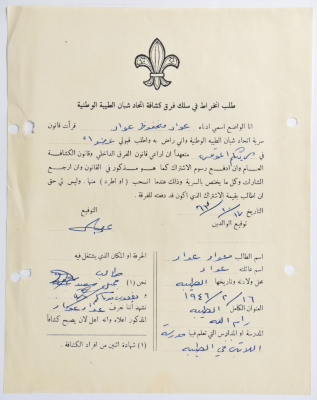 طلب انخراط في سلك فرق كشافة اتحاد شبان الطيبة الوطنية
انا الواضع اسمي ادناه عواد محفوظ عواد قرأت قانون
سرية اتحاد شبان الطيبة الوطنية واني راض به واطلب قبولي عضوا
في متعهداً ان اراعي قانون الفرق الداخلي وقانون الكشافة
العام وان أدفع رسوم الاشتراك كما هو مذكور في القانون وان ارجع
الشارات وكل ما يختص بالسرية وذلك عندما انسحب (أو اطرد) منها. وليس لي حق
ان اطالب بقيمة الاشتراك الذي اكون قد دفعته للفرقة.
التاريخ ١٧ / ١ / ٦٣ التوقيع
توقيع الوالدين
اسم الطالب عواد عواد
اسم عائلته عواد
محل ولادته وتاريخها الطيبه
١٦ / ٢ / ١٩٤٦
العنوان الكامل الطيبه
رام الله
المدرسة او المدارس التي تعلم فيها مدرسة
اللاتين في الطيبه
الحرفة او المكان الذي يشتغل فيه
طالب
نحن (١)
نشهد أننا نعرف عواد عواد
المذكور اعلاه وانه اهل لان يصبح كشافاً
(١) شهادة اثنين من افراد الكشافة.